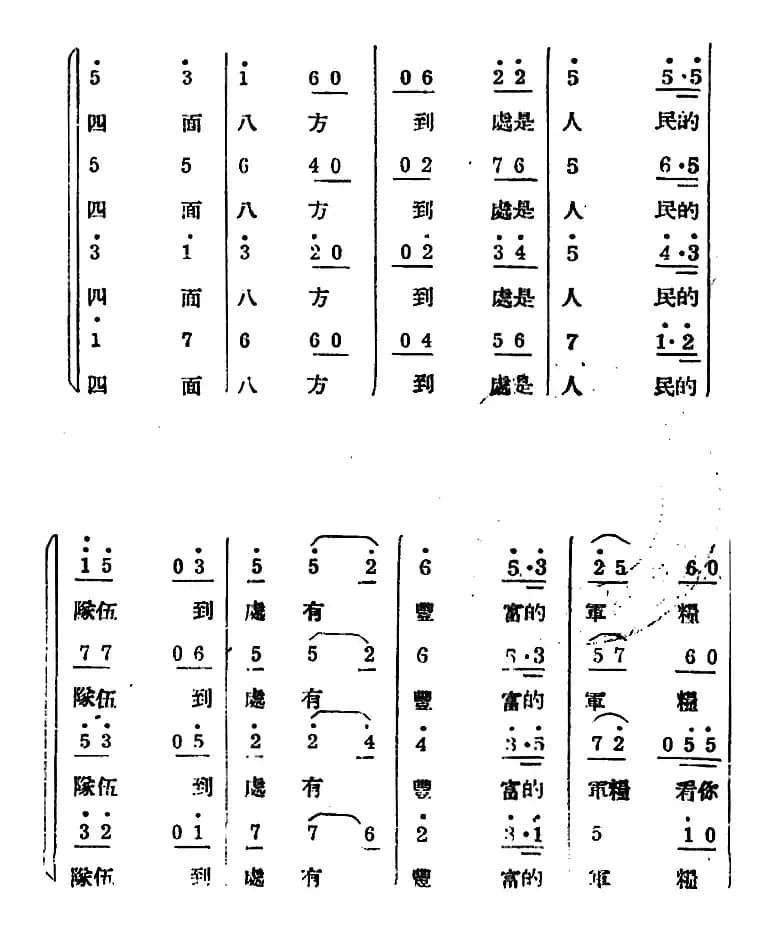 5̇ 3̇ 1̇ 6 0 0 6 2̇ 2̇ 5̇ 5̇ · 5̇
四 面 八 方 到 處是 人 民的
5 5 6 4 0 0 2 7 6 5 6 · 5
四 面 八 方 到 處是 人 民的
3̇ 1̇ 3̇ 2̇ 0 0 2̇ 3̇ 4̇ 5̇ 4̇ · 3̇
四 面 八 方 到 處是 人 民的
1̇ 7 6 6 0 0 4 5 6 7 1̇ · 2̇
四 面 八 方 到 處是 人 民的
1̇ 5̇ 0 3̇ 5̇ 5̇ 2̇ 6̇ 5̇ · 3̇ 2̇ 5 6 0
隊伍 到 處 有 豐 富的 軍 糧
7 7 0 6 5 5 2 6 5 · 3 5 7 6 0
隊伍 到 處 有 豐 富的 軍 糧
5̇ 3̇ 0 5̇ 2̇ 2̇ 4̇ 4̇ 3̇ · 5̇ 7 2̇ 0 5̇ 5̇
隊伍 到 處 有 豐 富的 軍糧 看你
3̇ 2̇ 0 1̇ 7 7 6 2̇ 3̇ · 1̇ 5 1̇ 0
隊伍 到 處 有 豐 富的 軍 糧